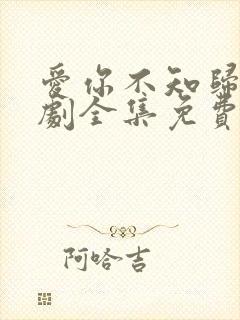 愛你不知歸
劇全集免費
阿哈吉